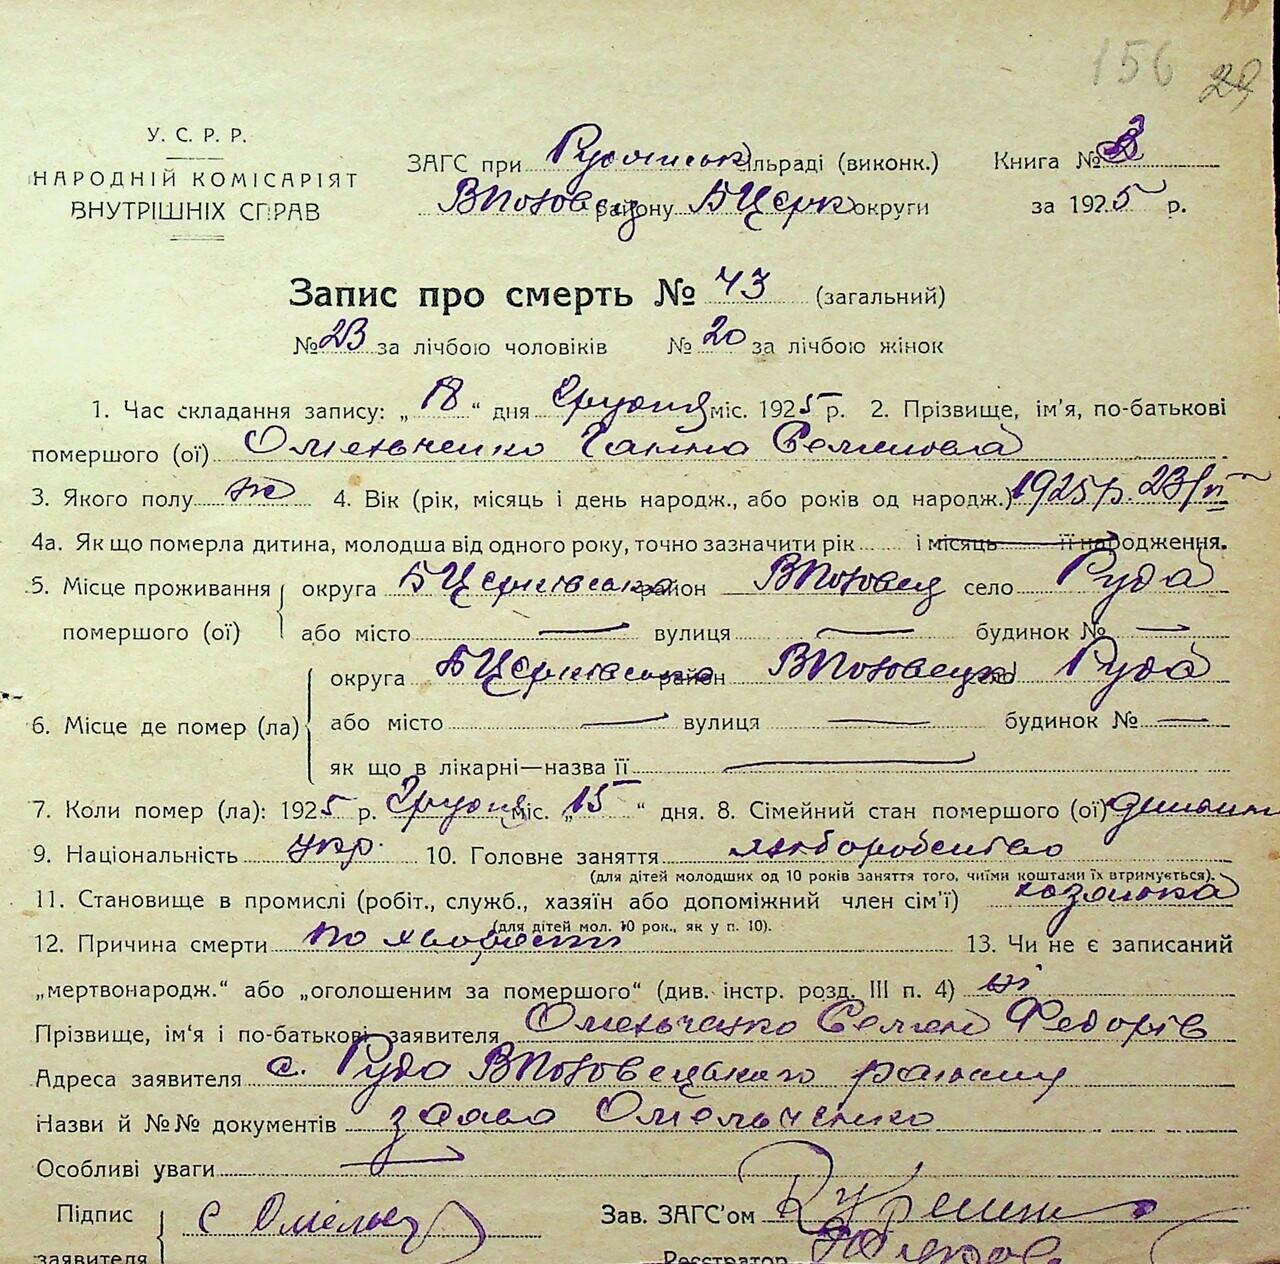 156 29
У. С. Р. Р.
НАРОДНІЙ КОМІСАРІЯТ
ВНУТРІШНІХ СПРАВ
ЗАГС при Рудянськ сільраді (виконк.)
ВПоловец району БЦерк округи
Книга №
за 1925 р.
Запис про смерть № 43 (загальний)
№ 23 за лічбою чоловіків № 20 за лічбою жінок
1. Час складання запису: „18“ дня Грудня міс. 1925 р. 2. Прізвище, ім'я, по-батькові
помершого (ої) Омельченко Ганна Семенова
3. Якого полу ж 4. Вік (рік, місяць і день народж., або років од народж.) 1925 р. 23/
4а. Як що померла дитина, молодша від одного року, точно зазначити рік і місяць її народження.
5. Місце проживання помершого (ої) округа БЦерківська район ВПоловец село Руда
або місто — вулиця — будинок № —
6. Місце де помер (ла) округа БЦерківська район ВПоловецьк село Руда
або місто — вулиця — будинок № —
як що в лікарні—назва її —
7. Коли помер (ла): 1925 р. Грудня міс. „15“ дня. 8. Сімейний стан помершого (ої) дитина
9. Національність укр. 10. Головне заняття хліборобство
(для дітей молодших од 10 років заняття того, чиїми коштами їх втримується).
11. Становище в промислі (робіт., служб., хазяїн або допоміжний член сім'ї) хозяйка
(для дітей мол. 10 рок., як у п. 10).
12. Причина смерти по хворости 13. Чи не є записаний
„мертвонародж.“ або „оголошеним за помершого“ (див. інстр. розд. III п. 4) ні
Прізвище, ім'я і по-батькові заявителя Омельченко Семен Федорів
Адреса заявителя с. Руда ВПоловецького району
Назви й №№ документів Омельченко
Особливі уваги —
Підпис заявителя С Омельч
Зав. ЗАГС'ом
Реєстратор